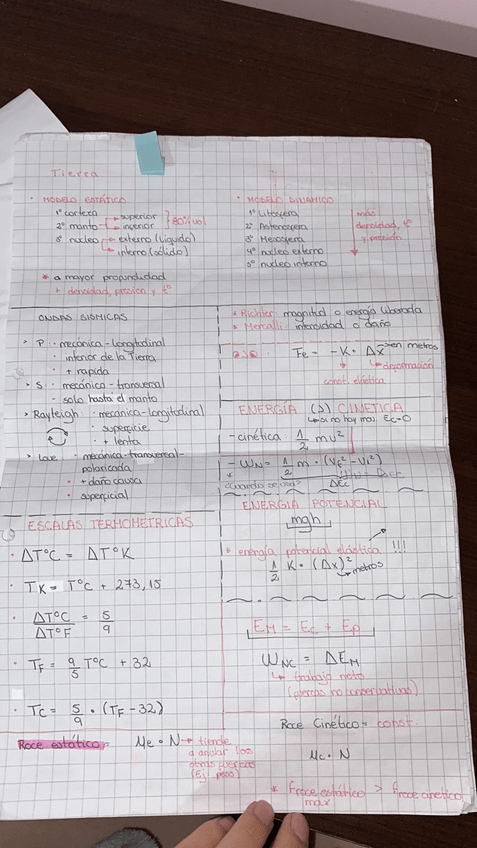 Tierra
• MODELO ESTÁTICO
1º corteza
2º manto → superior
→ inferior } 80% vol
3º nucleo → externo (líquido)
→ interno (sólido)
* a mayor profundidad
+ densidad, presion y tº
• MODELO DINAMICO
1º Litosfera
2º Astenosfera
3º Mesosfera
4º nucleo externo
5º nucleo interno
más
densidad, tº
y presión
ONDAS SISMICAS
> P : mecánica - longitudinal
• interior de la Tierra
• + rapida
> S : mecánica - transversal
• solo hasta el manto
> Rayleigh : mecanica - longitudinal
• superficie
• + lenta
> Love : mecánica - transversal -
polarizada
• + daño causa
• superficial
* Richter: magnitud o energía liberada
* Mercalli: intensidad o daño
OJO: Fe = -K · Δx → en metros
↳ deformación
const. elástica
ENERGÍA (S) CINETICA
↳ si no hay mov. Ec=0
- cinética: 1/2 mv²
- WN = 1/2 m · (Vf² - Vi²)
ΔEc
ENERGÍA POTENCIAL
mgh
* energía potencial elástica !!!
1/2 K · (Δx)²
↳ metros
EM = Ec + Ep
WNC = ΔEM
↳ trabajo neto
(fuerzas no conservativas)
ESCALAS TERMOMETRICAS
• ΔT°C = ΔT°K
• TK = T°C + 273,15
• ΔT°C / ΔT°F = 5/9
• TF = 9/5 T°C + 32
• TC = 5/9 · (TF - 32)
Roce estático = μe · N → tiende
a anular las
otras fuerzas
(Ej: peso)
Roce Cinético = const.
μc · N
* Froce estático max > Froce cinetico